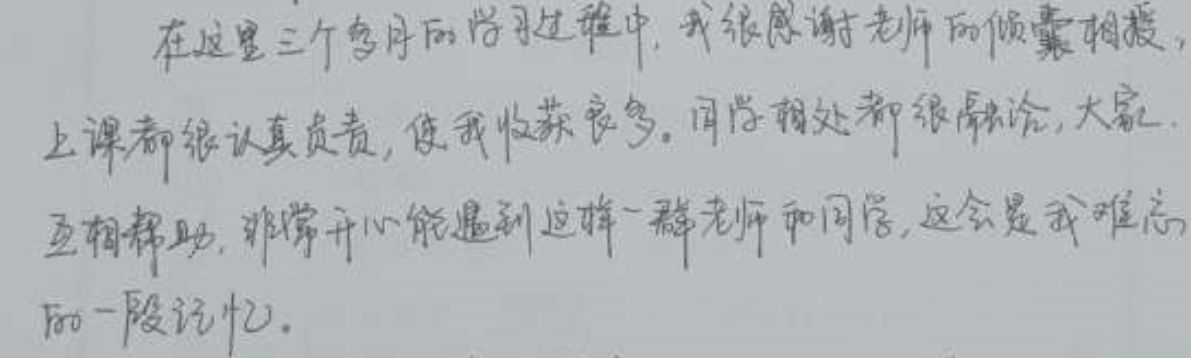 在这里三个多月的学习过程中,我很感谢老师的倾囊相授,
上课都很认真负责,使我收获良多。同学相处都很融洽,大家
互相帮助,非常开心能遇到这样一群老师和同学,这会是我难忘
的一段记忆。